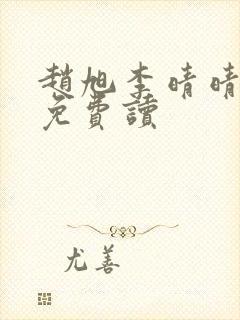 趙旭李晴晴
免費讀
尤善